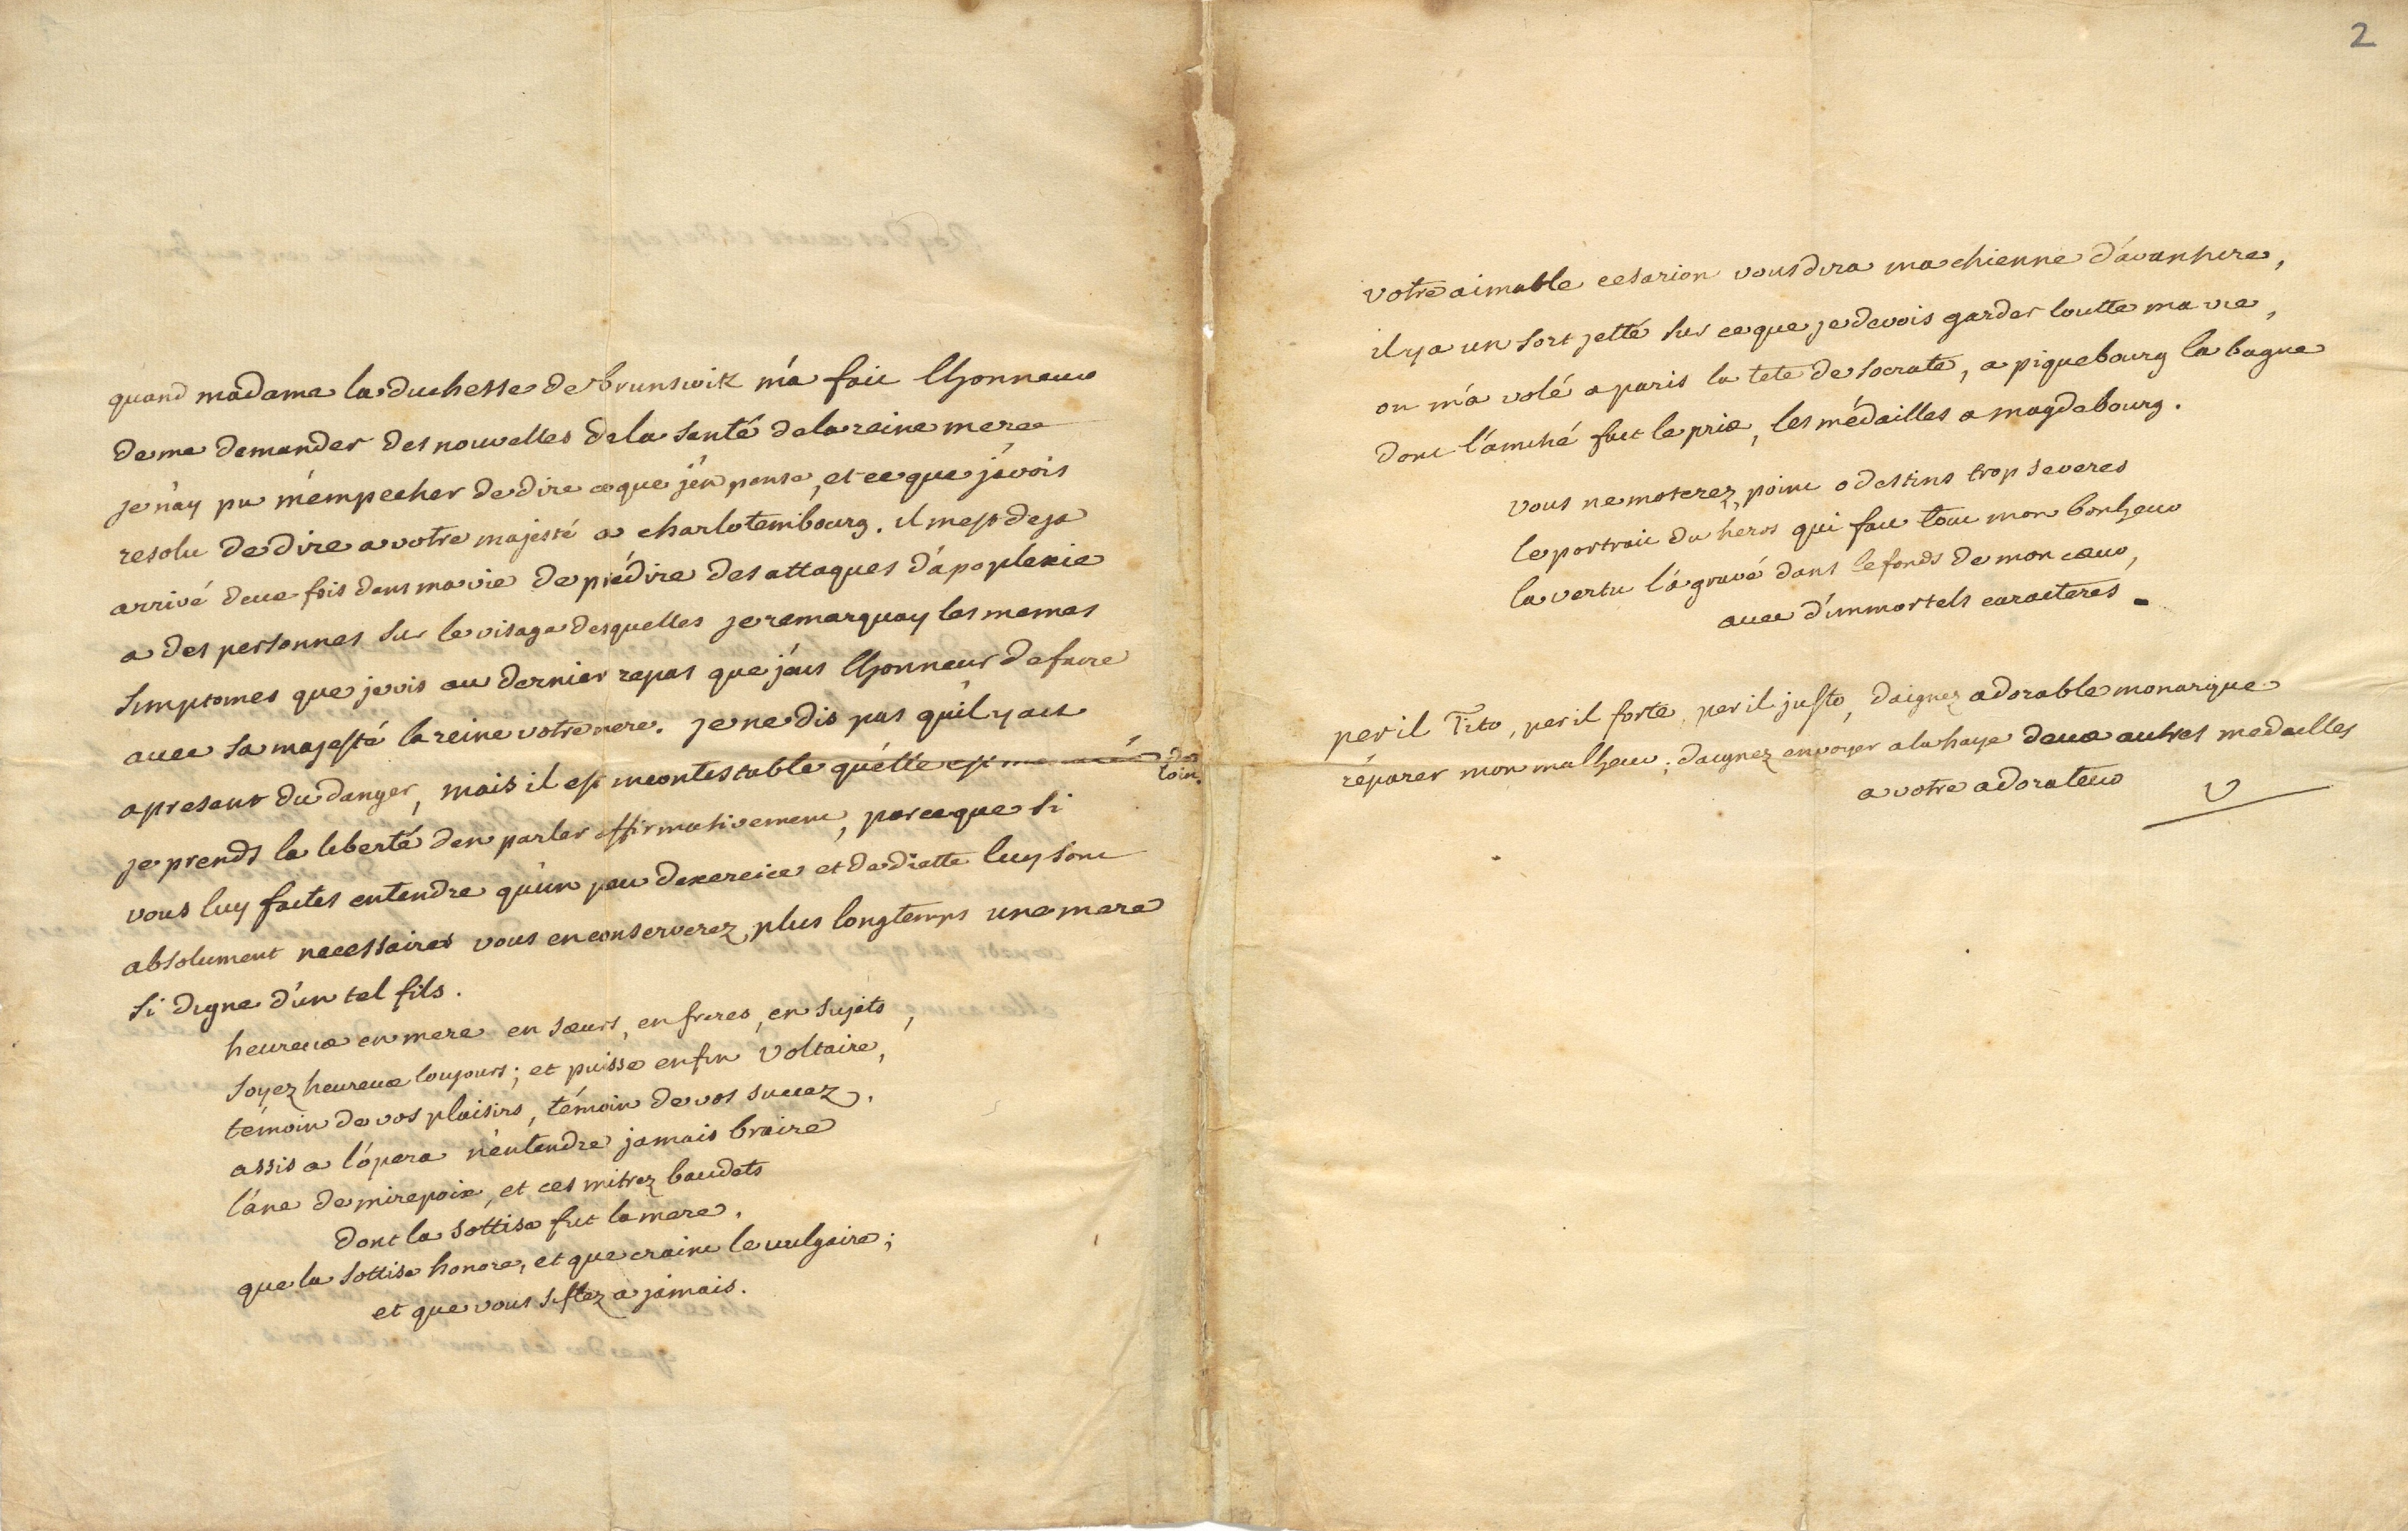 quand madame la duchesse de brunswik m'a fait lhonneur
de me demander des nouvelles de la santé de la reine mere
je n'ay pu m'empecher de dire ce que j'en pense, et ce que j'avois
resolu de dire a votre majesté a charlotembourg. il mest deja
arrivé deux fois dans ma vie de prédire des attaques d'apoplexie
a des personnes sur le visage desquelles je remarquay les memes
simptomes que je vis au dernier repas que j'eus lhonneur de faire
avec sa majesté la reine votre mere. je ne dis pas qu'il y ait
a present du danger, mais il est incontestable qu'elle est
je prends la liberté den parler affirmativement, parceque si
vous luy faites entendre qu'un peu dexercice et de diette luy sont
absolument necessaires vous en conserverez plus longtemps une mere
si digne d'un tel fils.
heureux en mere en sœurs, en freres, en sujets,
soyez heureux toujours; et puisse enfin Voltaire,
témoin de vos plaisirs, témoin de vos succez,
assis a l'opera n'entendre jamais braire
l'ane de mirepoix, et ces mitrez baudets
dont la sottise fut la mere,
que la sottise honore, et que craint le vulgaire;
et que vous siflez a jamais.
2
votre aimable cesarion vous dira ma chienne d'avanture,
il y a un sort jetté sur ce que je devois garder toutte ma vie,
on m'a volé a paris la tete de socrate, a piquebourg la bague
dont l'amitié fait le prix, les médailles a magdebourg.
vous ne moterez point o destins trop severes
le portrait du heros qui fait tout mon bonheur
la vertu l'a gravé dans le fonds de mon cœur,
avec d'immortels caracteres.
per il Tito, per il forte, per il justo, daignez adorable monarque
réparer mon malheur, daignez envoyer a la haye deux autres medailles
a votre adorateur V